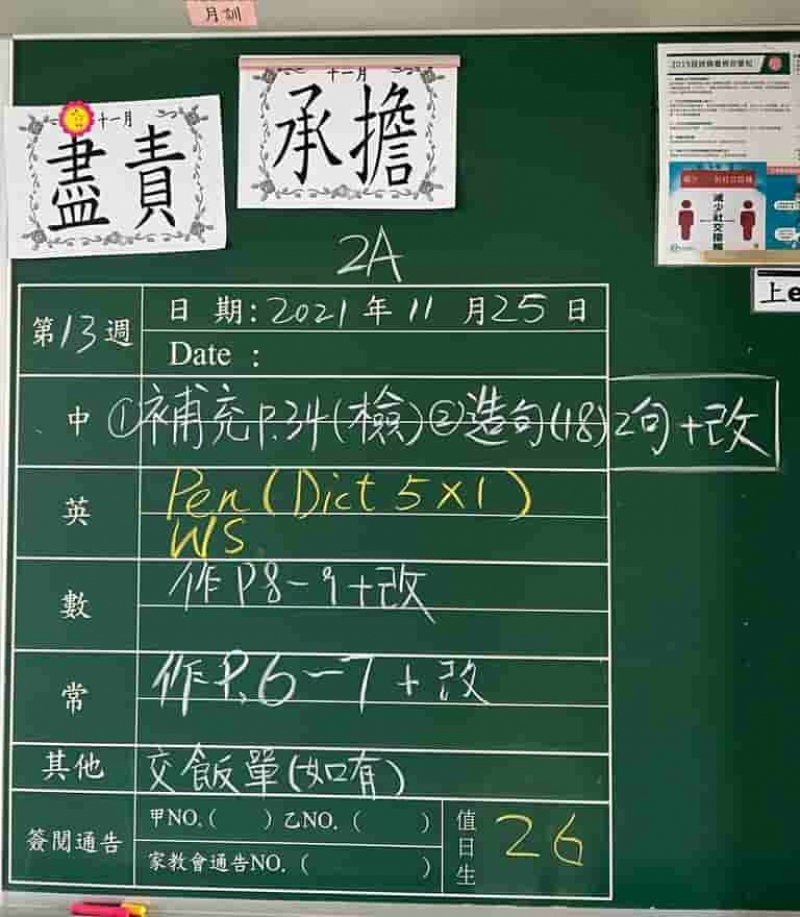 月訓
十一月
盡責
十一月
承擔
減少社交接觸
上e
2A
第13週
日期:2021年11月25日
Date :
中 ①補充P.34(檢)②造句(18)2句+改
英 Pen (Dict 5×1)
WS
數 作P8-9+改
常 作P.6-7+改
其他 交飯單(如有)
簽閱通告 甲NO.( ) 乙NO. ( )
家教會通告NO. ( )
值日生 26